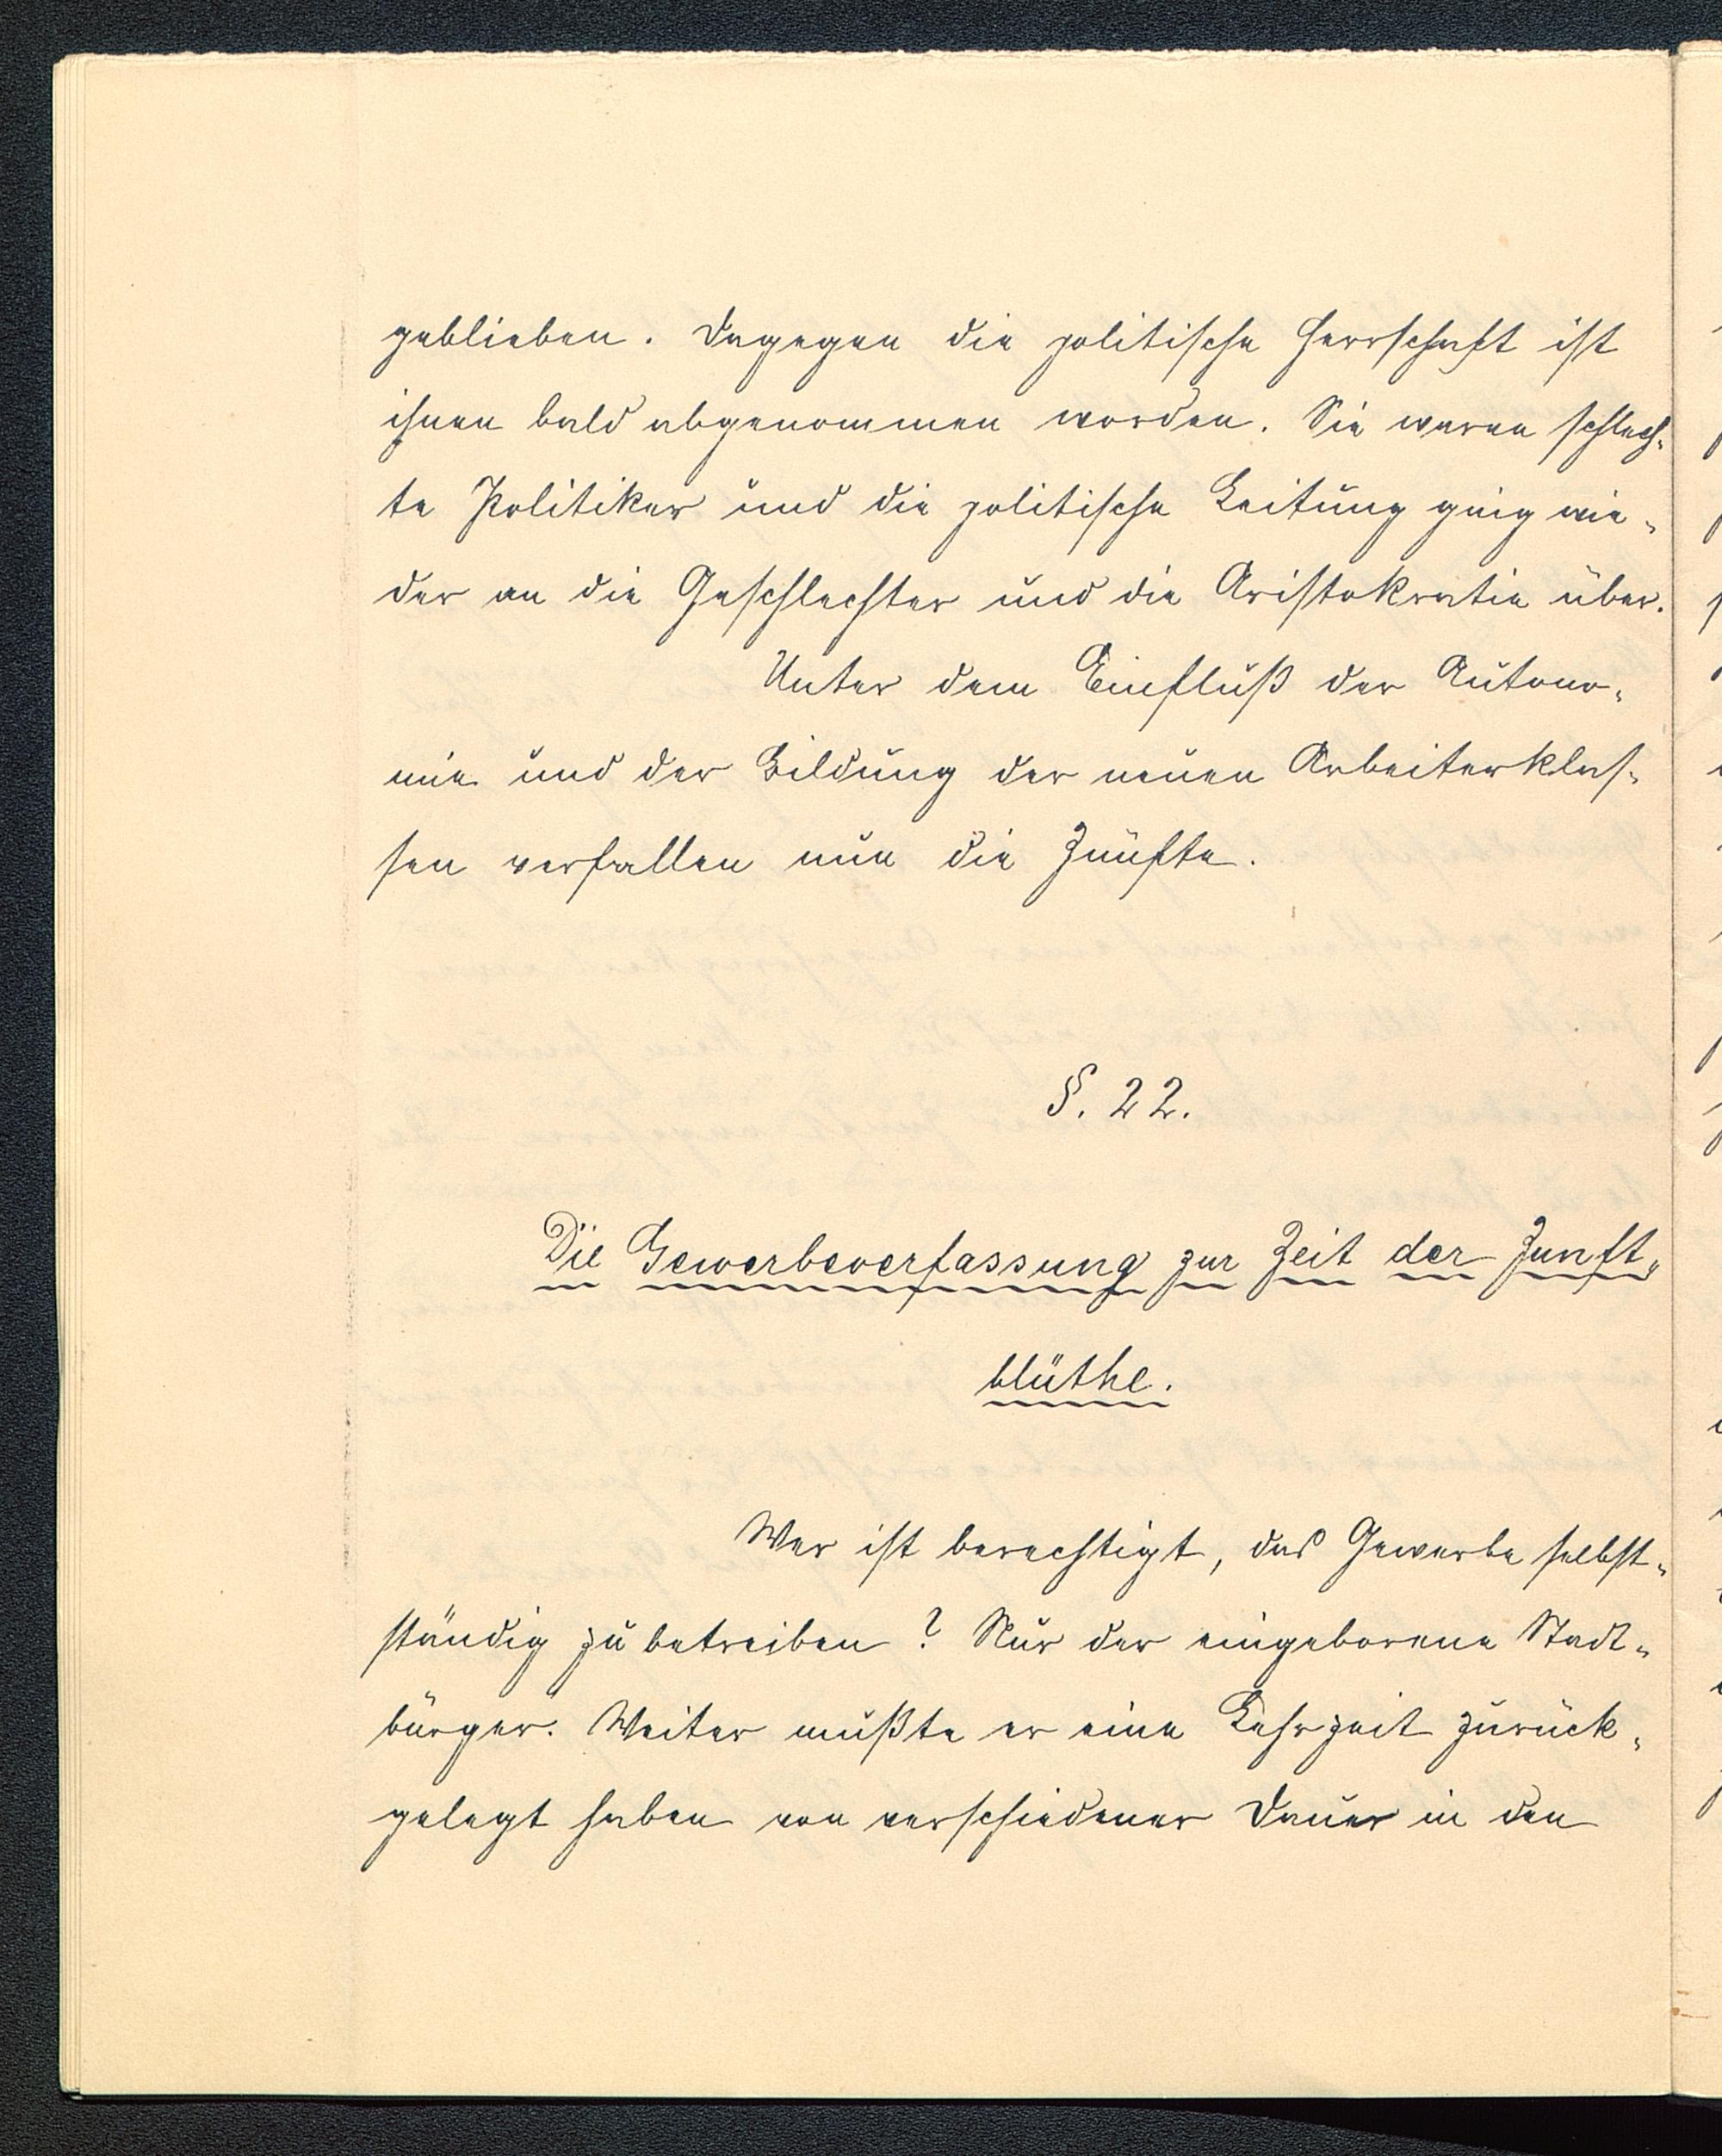 geblieben. Dagegen die politische Herrschaft ist
ihnen bald abgenommen worden. Sie waren schlech-
te Politiker und die politische Leitung ging wie-
der an die Geschlechter und die Aristokratie über.
Unter dem Einfluß der Autono-
mie und der Bildung der neuen Arbeiterklas-
sen verfallen nun die Zünfte.
§. 22.
Die Gewerbeverfassung zur Zeit der Zunft-
blüthe.
Wer ist berechtigt, das Gewerbe selbst-
ständig zu betreiben? Nur der eingeborene Stadt-
bürger. Weiter mußte er eine Lehrzeit zurück-
gelegt haben von verschiedener Dauer in den